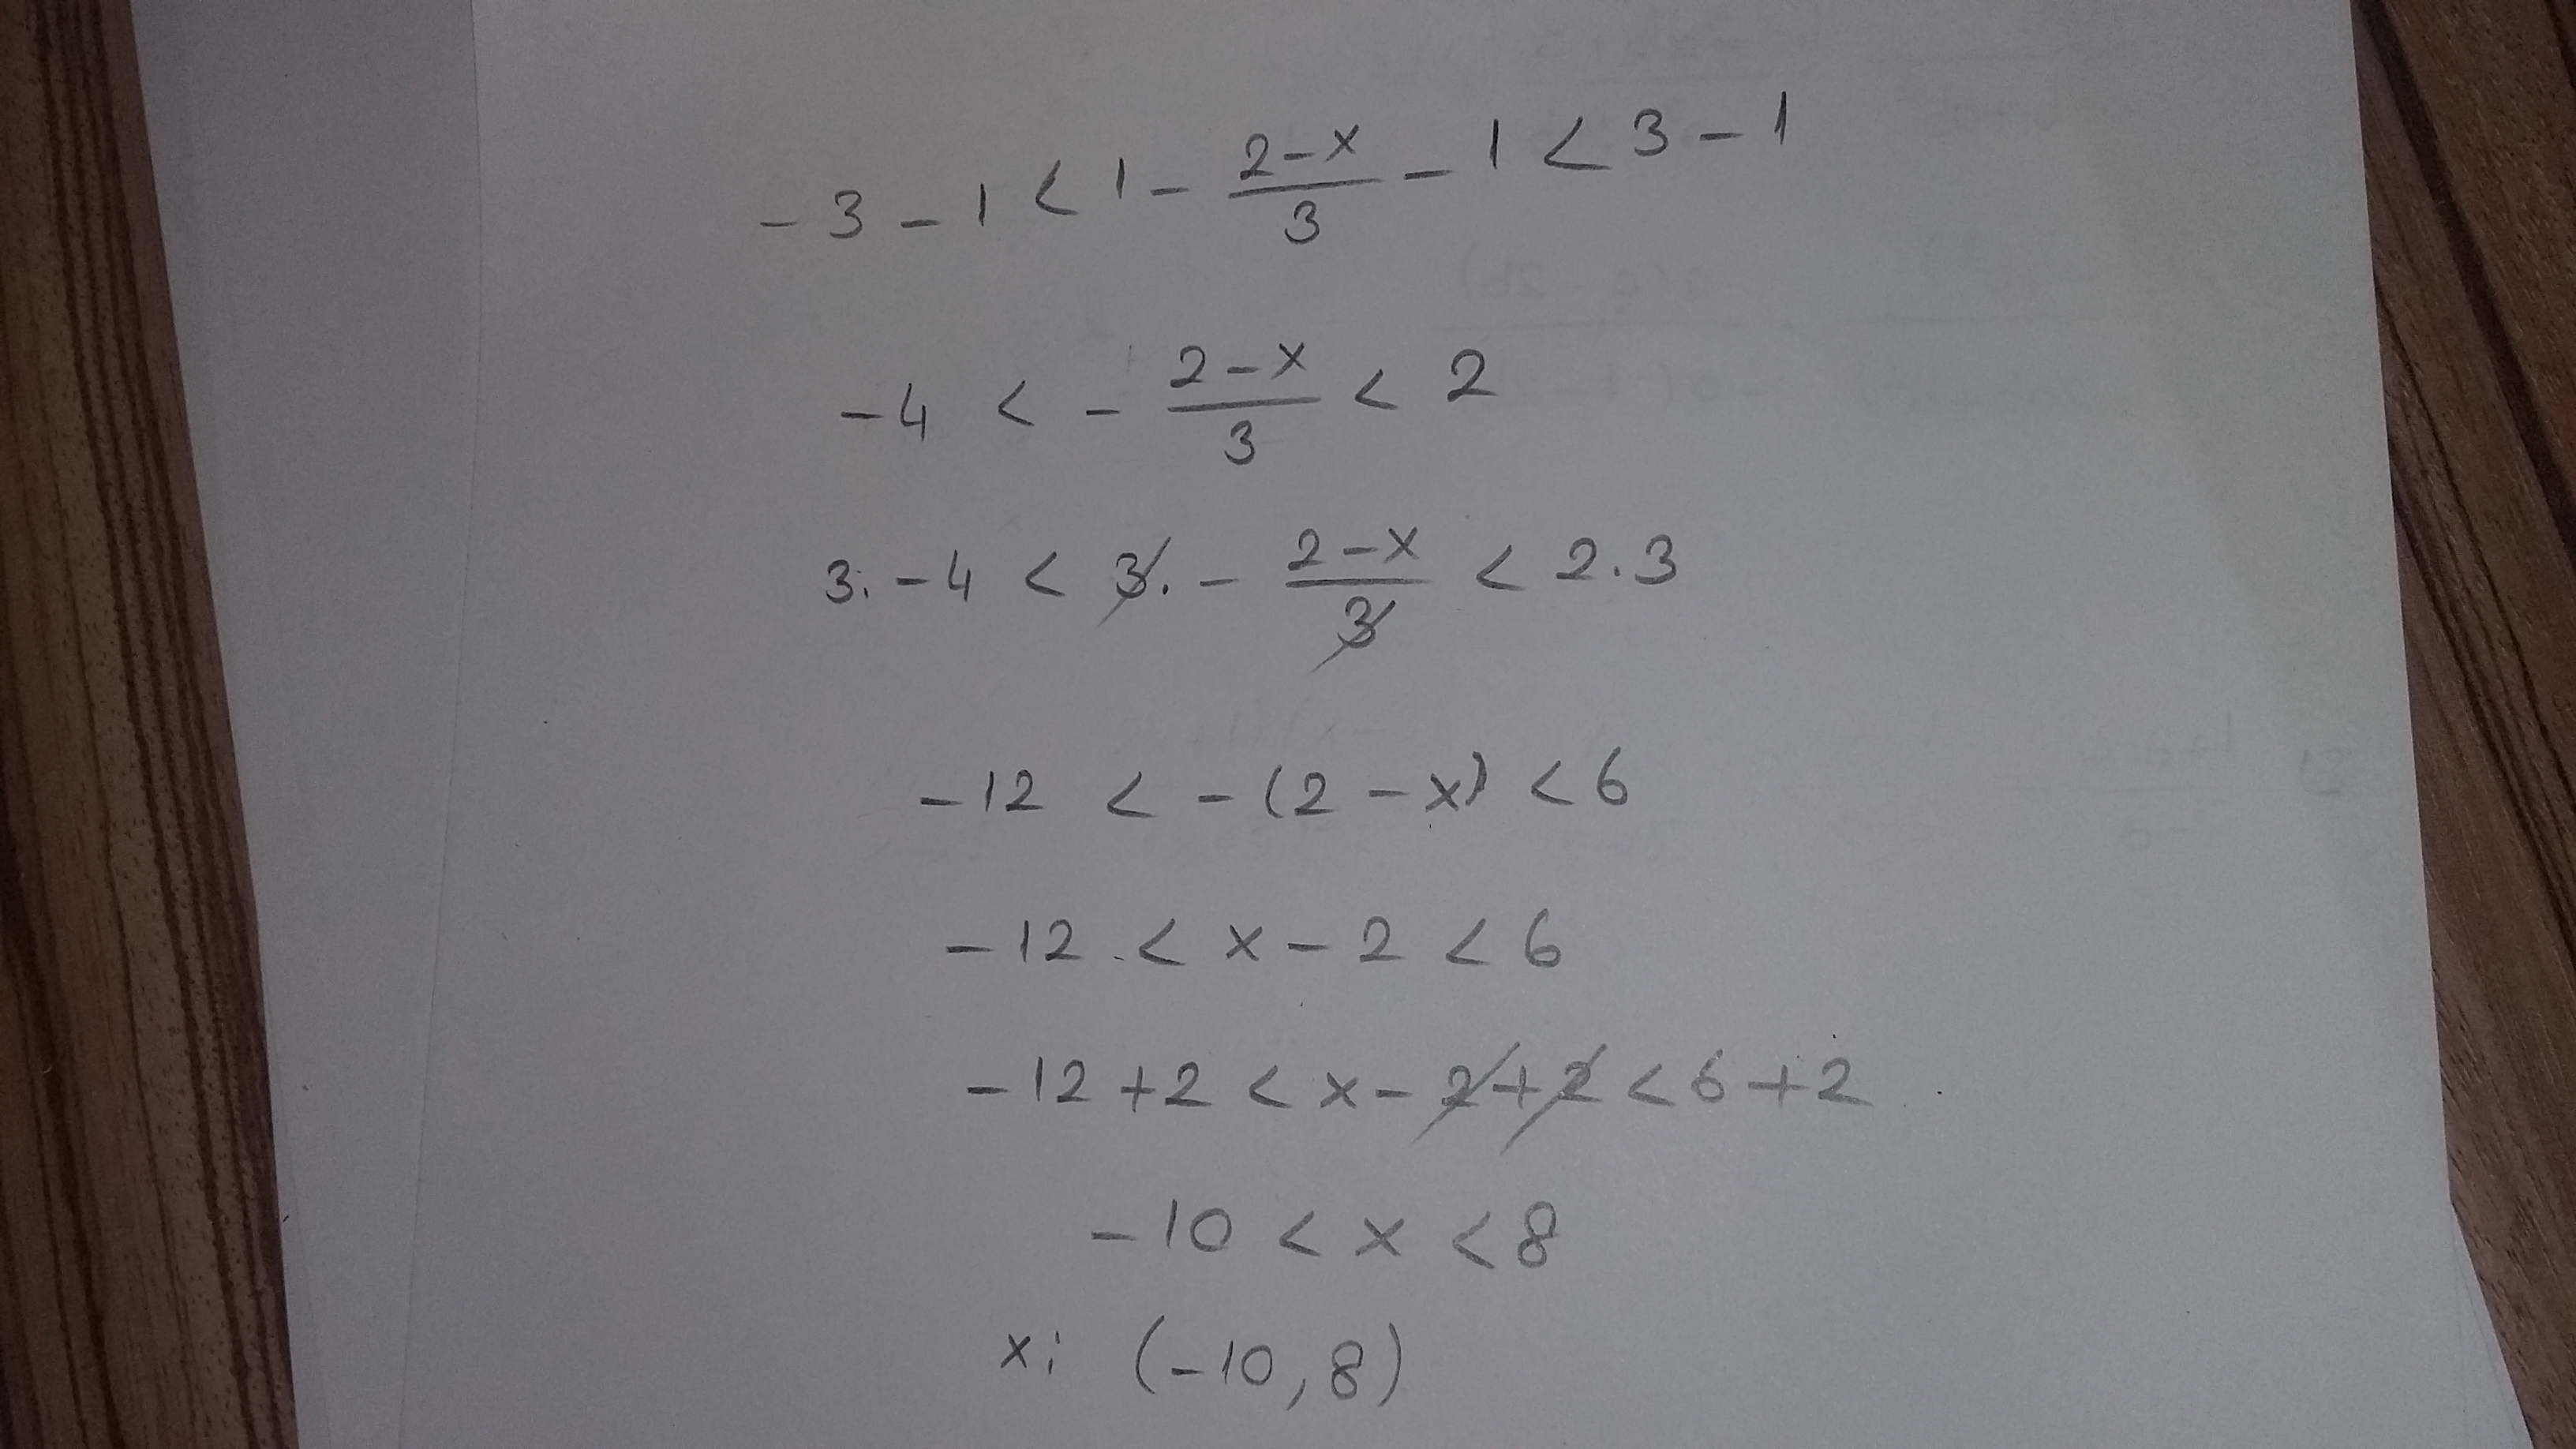 -3 - 1 < 1 - \frac{2-x}{3} - 1 < 3 - 1
-4 < - \frac{2-x}{3} < 2
3. -4 < 3. - \frac{2-x}{3} < 2.3
-12 < -(2-x) < 6
-12 < x - 2 < 6
-12 + 2 < x - 2 + 2 < 6 + 2
-10 < x < 8
x: (-10, 8)